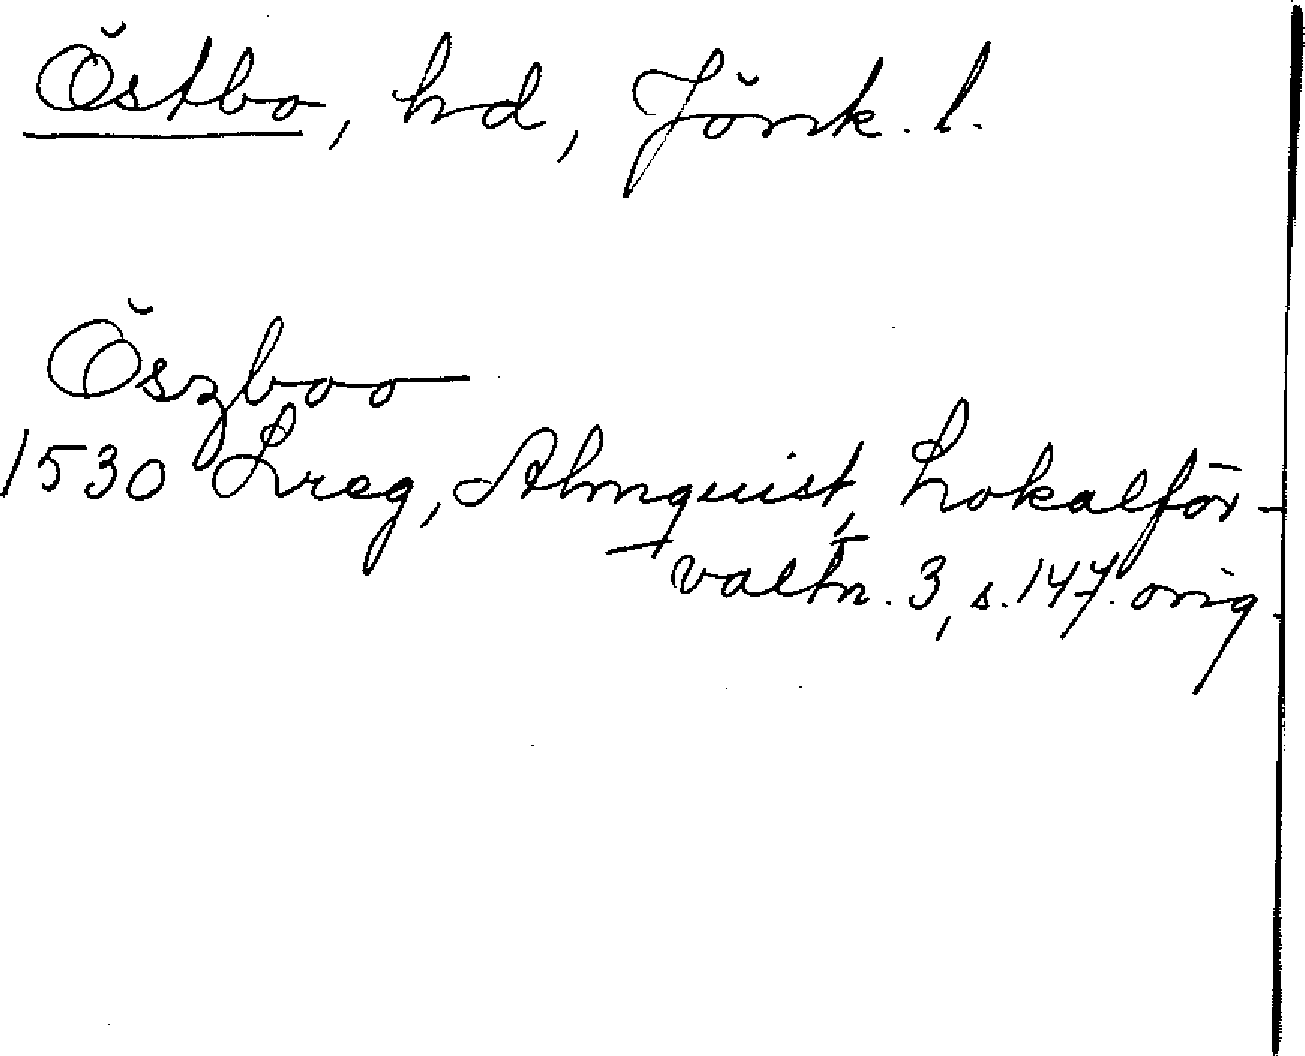 Östbo, hd, Jönk. l.
Öszboo
1530 Lreg, Almquist, Lokalför-
valtn. 3, s. 147. orig.